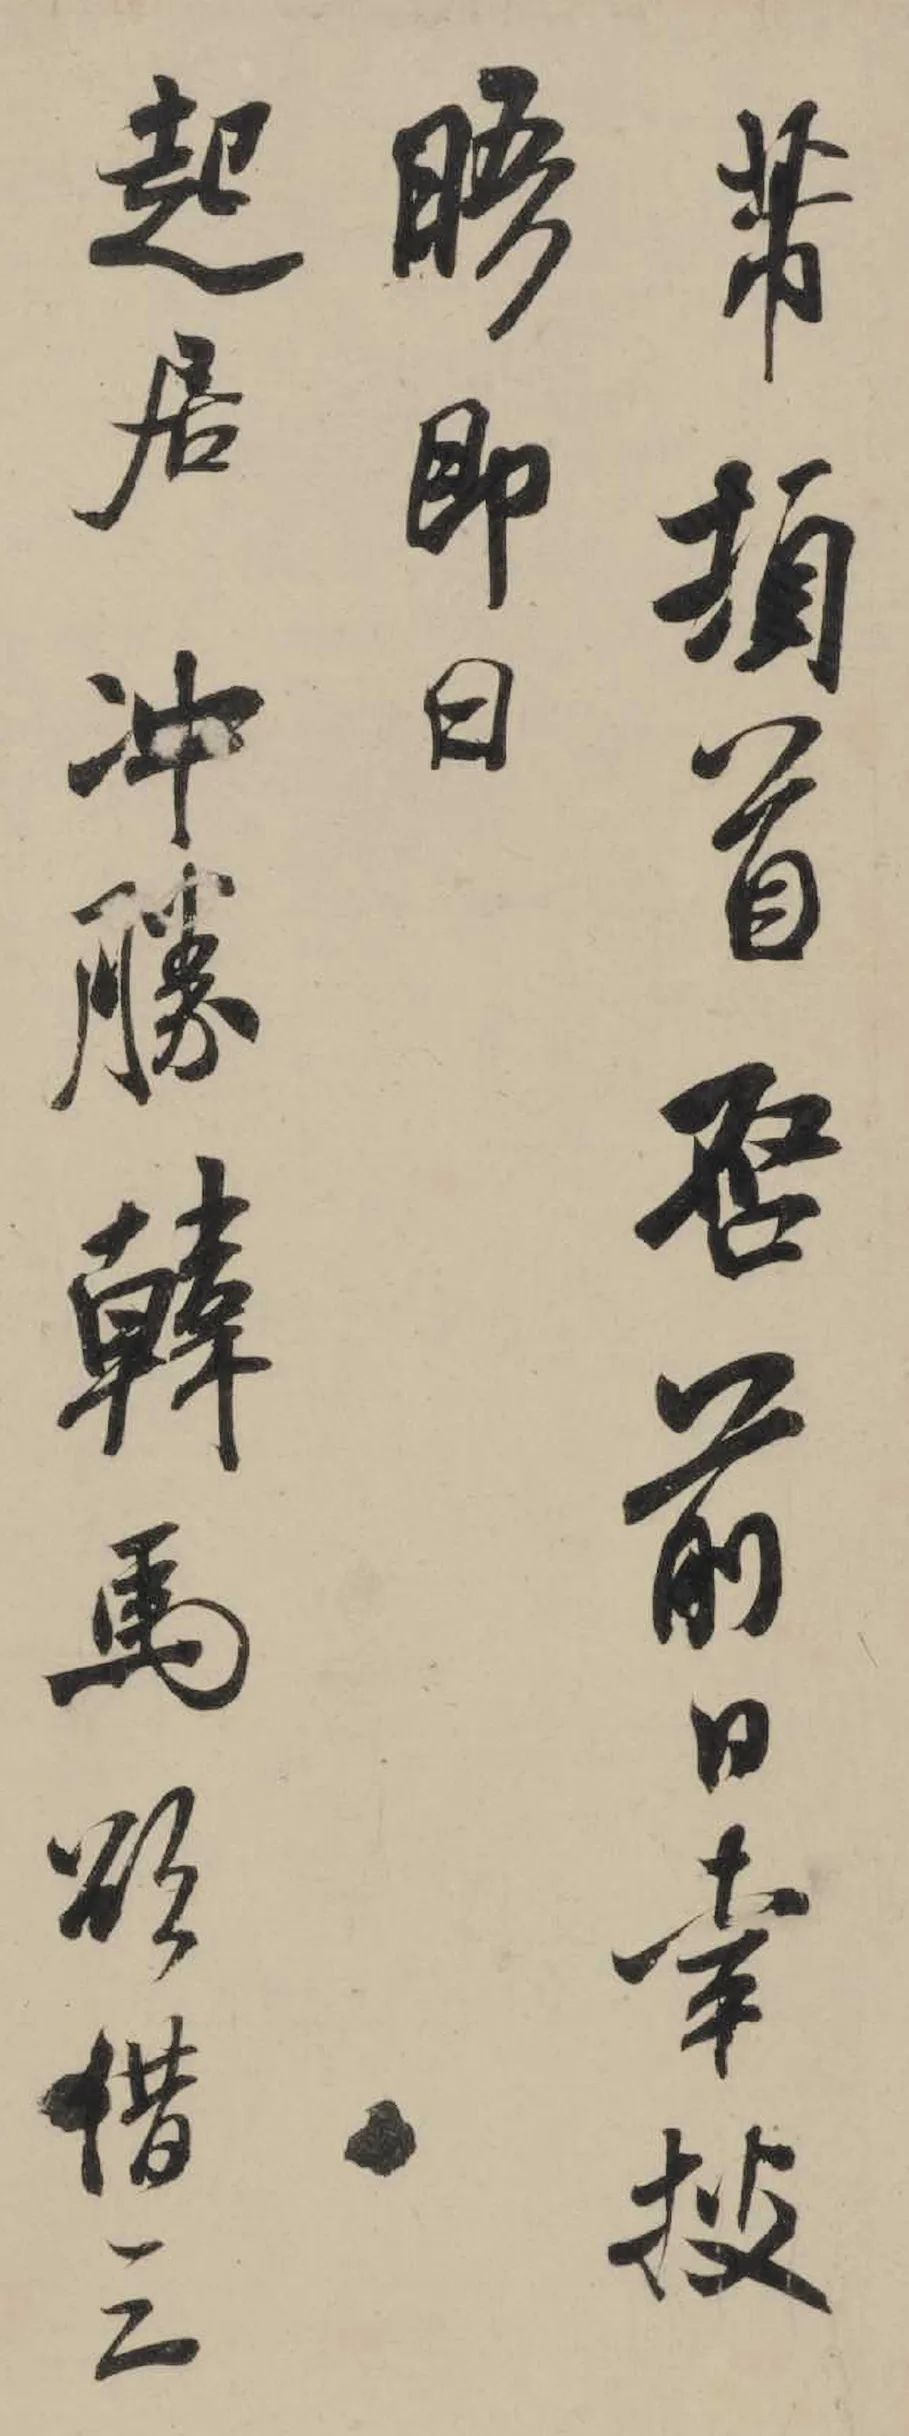 芾頓首啓前日幸披
晤即日
起居冲勝韓馬欲借三